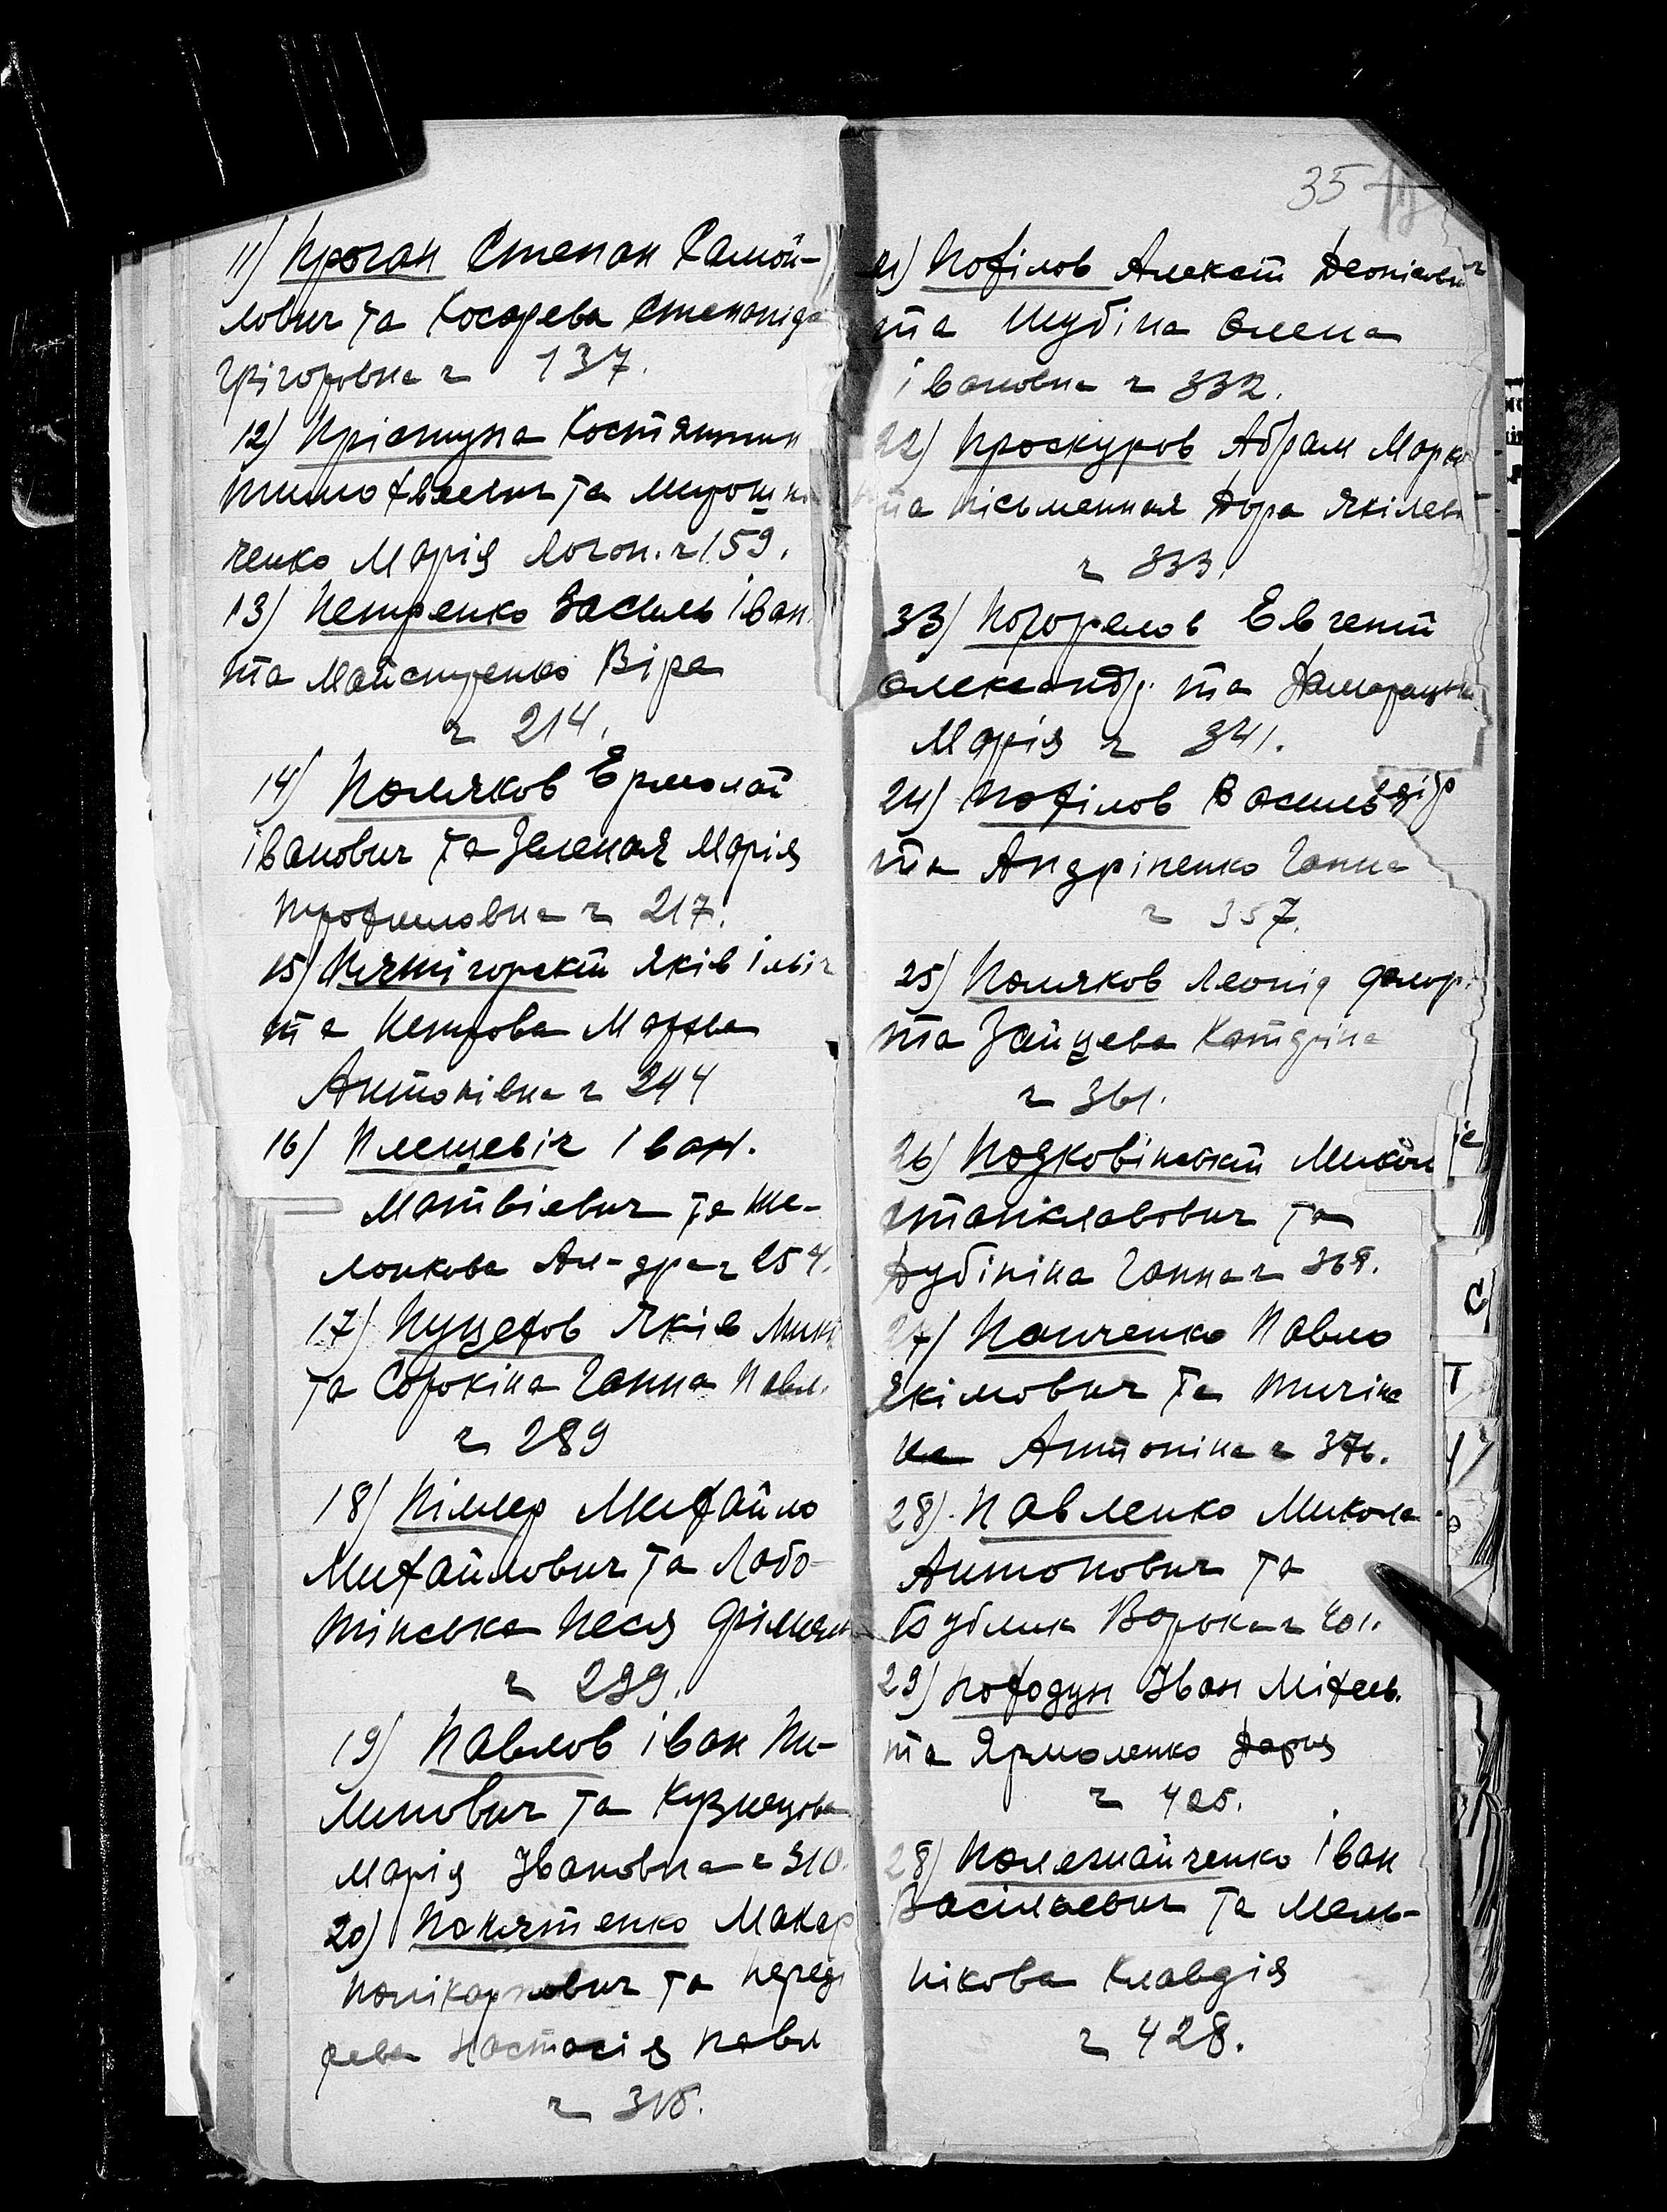 11) Проган Степан Самой-
лович та Косарева Степаніда
Грігоровна ч 137.
12) Пріступа Костянтин
Тимофеевич та Мирошни
ченко Марія Логон. ч 159.
13) Петренко Василь Іван.
та Майстренко Віра
ч 214.
14) Поляков Ермолай
Іванович та Зеленая Марія
Трофимовна ч 217.
15) Пятігорскій Яків Ільіч
та Петрова Марфа
Антонівна ч 244
16) Плещевіч Іван.
Матвіевич та Ше-
лонкова Ал-дра ч 254.
17) Пузетов Яків Мик
та Сорокіна Ганна Павл.
ч 289
18) Піллер Михайло
Михайлович та Лобо-
тинська Песя
ч 299.
19) Павлов Іван Пи-
липович та Кузнецова
Марія Івановна ч 310.
20) Понятенко Макар
Полікарпович таПеред
рева Настасія Павл
ч 316.
35
21) Похілов Алексій
та Шубіна Олена
Івановна ч 332.
22) Проскуров Абрам Марко
та Пісьменная Дора
ч 333.
33) Погорелов Евгеній
Олександр. та
Марія ч 341.
24) Похілов Василь
та Андріненко Ганна
ч 357.
25) Поляков Леонід
та Зайцева Катдріна
ч 361.
26) Подковінський Микол
Станіславович та
Дубініна Ганна ч 368.
27) Панченко Павло
Якімович та Тичіна
на Антоніна ч 376.
28) Павленко Микола
Антонович та
Бублик Ворька ч 401.
29) Походун Іван Міхель.
та Ярмоленко Дарія
ч 425.
28) Полежайченко Іван
Васільевич та Мель-
нікова Клавдія
ч 428.